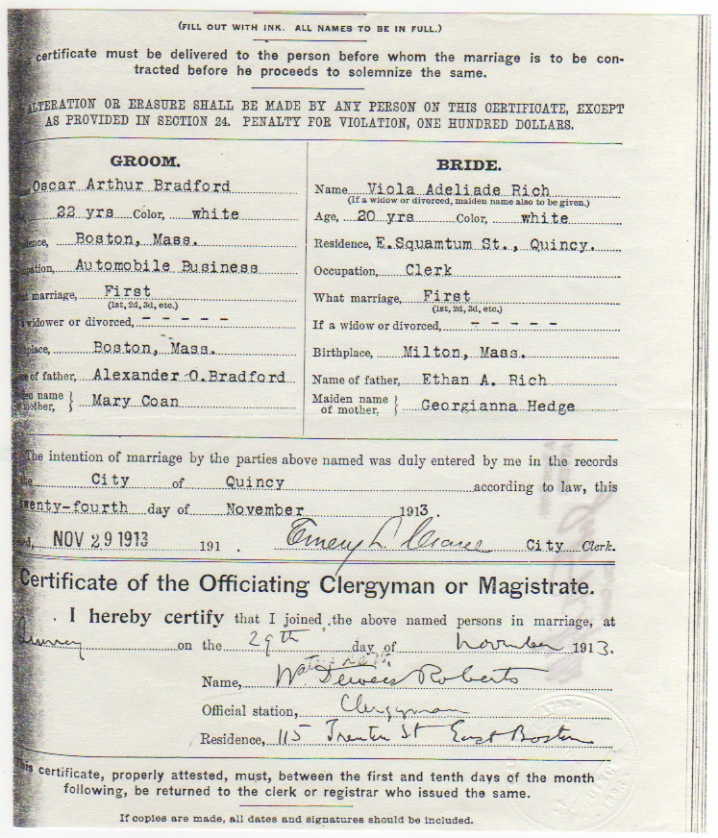 (FILL OUT WITH INK. ALL NAMES TO BE IN FULL.)
certificate must be delivered to the person before whom the marriage is to be con-
tracted before he proceeds to solemnize the same.
ALTERATION OR ERASURE SHALL BE MADE BY ANY PERSON ON THIS CERTIFICATE, EXCEPT
AS PROVIDED IN SECTION 24. PENALTY FOR VIOLATION, ONE HUNDRED DOLLARS.
GROOM.
Oscar Arthur Bradford
22 yrs Color, white
dence, Boston, Mass.
upation, Automobile Business
marriage, First
(1st, 2d, 3d, etc.)
widower or divorced, - - - - -
hplace, Boston, Mass.
of father, Alexander O.Bradford
en name of mother, } Mary Coan
BRIDE.
Name, Viola Adeliade Rich
(If a widow or divorced, maiden name also to be given.)
Age, 20 yrs Color, white
Residence, E.Squamtum St., Quincy.
Occupation, Clerk
What marriage, First
(1st, 2d, 3d, etc.)
If a widow or divorced, - - - - -
Birthplace, Milton, Mass.
Name of father, Ethan A. Rich
Maiden name of mother, } Georgianna Hedge
The intention of marriage by the parties above named was duly entered by me in the records
the City of Quincy according to law, this
twenty-fourth day of November 1913.
NOV 29 1913 191 . Emery L. Crane City Clerk.
Certificate of the Officiating Clergyman or Magistrate.
I hereby certify that I joined the above named persons in marriage, at
Quincy on the 29th day of November 1913.
Name, Wm Dewees Roberts
Official station, Clergyman
Residence, 115 Trenton St East Boston
This certificate, properly attested, must, between the first and tenth days of the month
following, be returned to the clerk or registrar who issued the same.
If copies are made, all dates and signatures should be included.